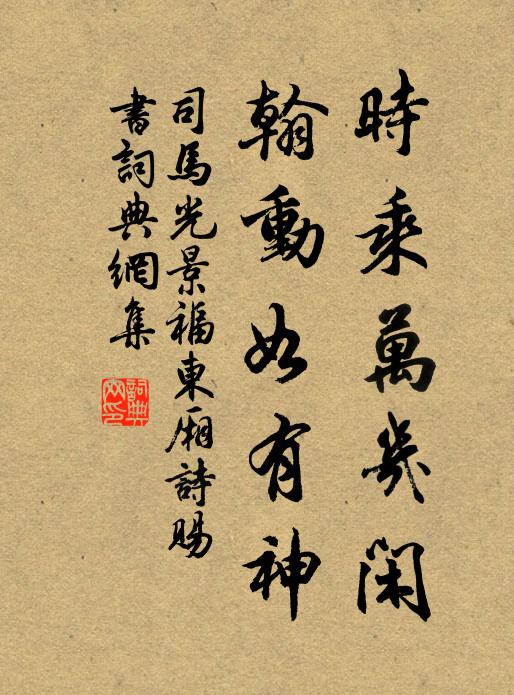 時乘萬幾閑
翰動如有神
司馬光景福東廂詩賜
書詞典網集
詞典
网印